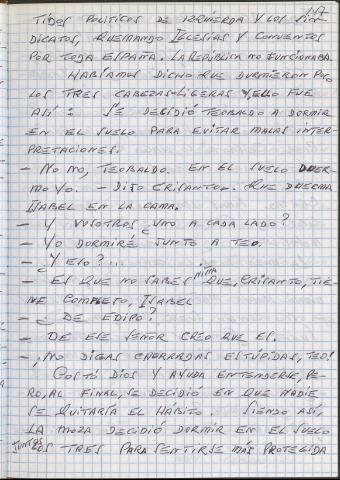 147
TIDOS POLITICOS DE IZQUIERDA Y LOS SIN
DICATOS, QUEMANDO IGLESIAS Y CONVENTOS
POR TODA ESPAÑA. LA REPÚBLICA NO FUNCIONABA.
HABÍAMOS DICHO QUE DURMIERON POCO
LOS TRES CABEZAS-LIGERAS Y, ELLO FUE
ASÍ: SE DECIDIÓ TEOBALDO A DORMIR
EN EL SUELO PARA EVITAR MALAS INTER-
PRETACIONES.
- NO NO, TEOBALDO. EN EL SUELO DUER-
MO YO. - DIJO CRISANTO. - QUE DUERMA
ISABEL EN LA CAMA.
- Y VOSOTROS ¿UNO A CADA LADO?
- YO DORMIRÉ JUNTO A TEO.
- ¿Y ESO?...
- ES QUE NO SABES NIÑA QUE, CRISANTO, TIE-
NE COMPLEJO, ISABEL
- ¿DE EDIPO?
- DE ESE SEÑOR CREO QUE ES.
- ¡NO DIGAS CHORRADAS ESTÚPIDAS, TEO!
COSTÓ DIOS Y AYUDA ENTENDERSE, PE-
RO, AL FINAL, SE DECIDIÓ EN QUE NADIE
SE QUITARÍA EL HABITO. SIENDO ASÍ,
LA MOZA DECIDIÓ DORMIR EN EL SUELO
JUNTOS LOS TRES PARA SENTIRSE MÁS PROTEGIDA